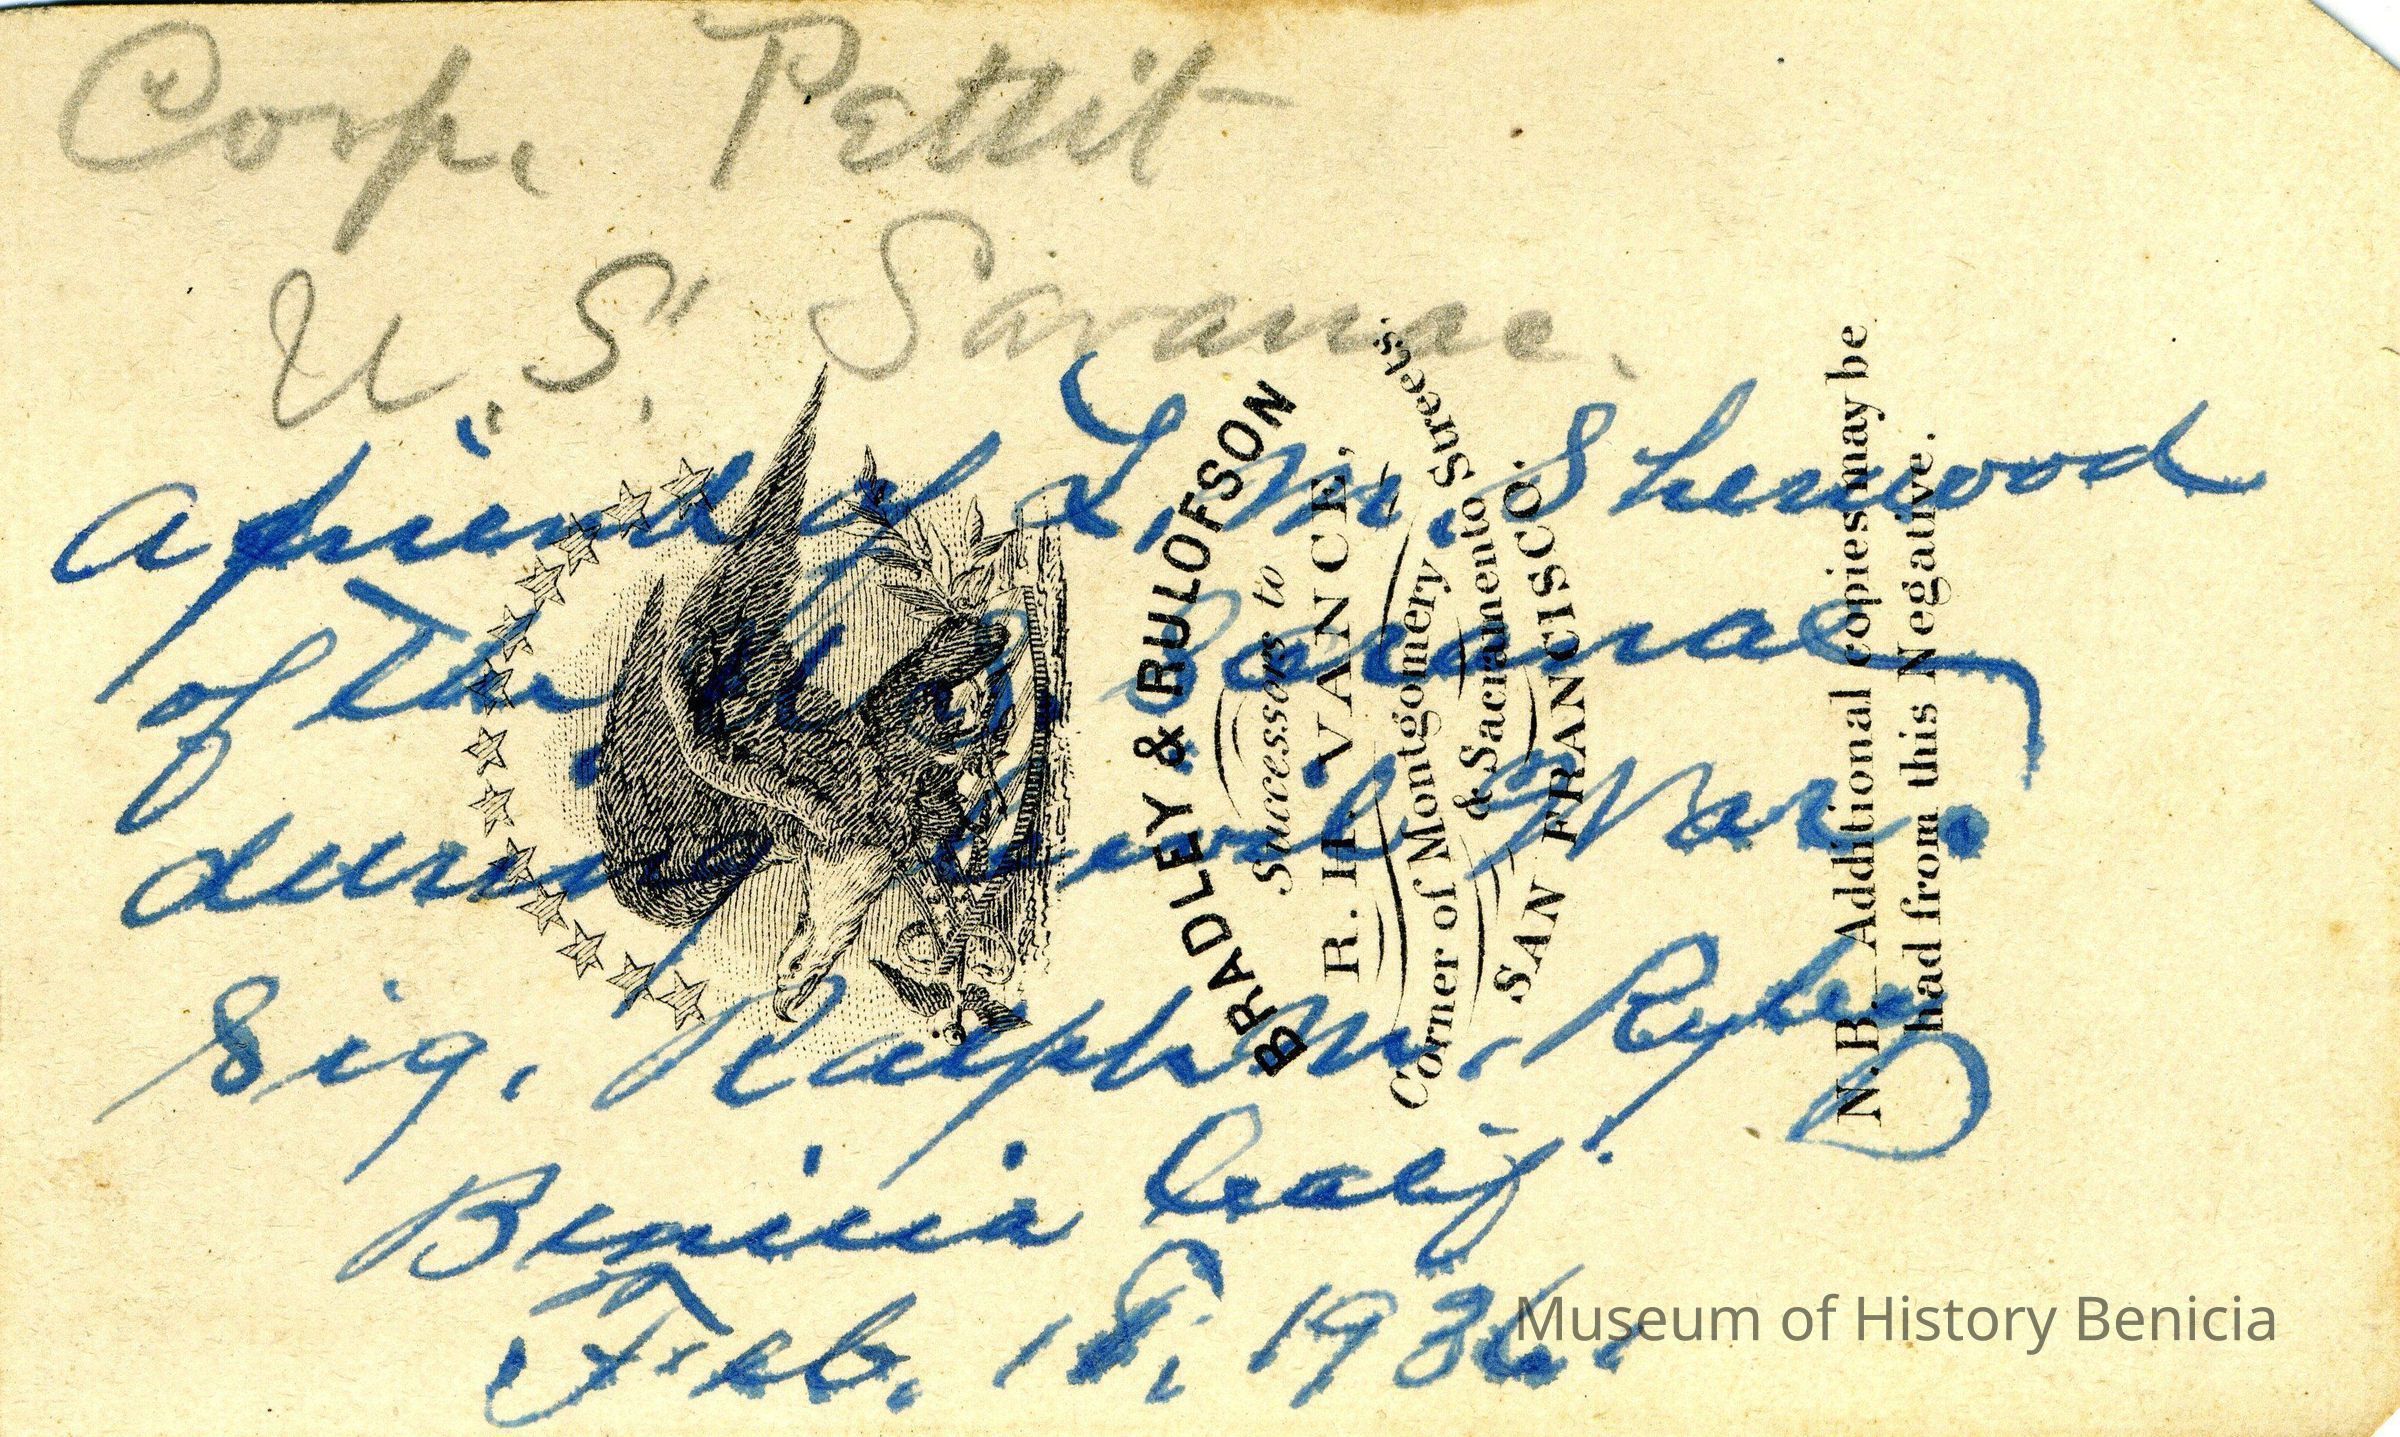 Corp. Pettit
U. S. "Saranac."
A friend of L. M. Sherwood
of the U. S. Saranac,
during Civil War.
Sig. Ralph M. Ryley
Benicia Calif.
Feb. 18, 1936.
BRADLEY & RULOFSON
Successors to
R. H. VANCE,
Corner of Montgomery
& Sacramento Streets.
SAN FRANCISCO.
N. B.—Additional copies may be
had from this Negative.
Museum of History Benicia